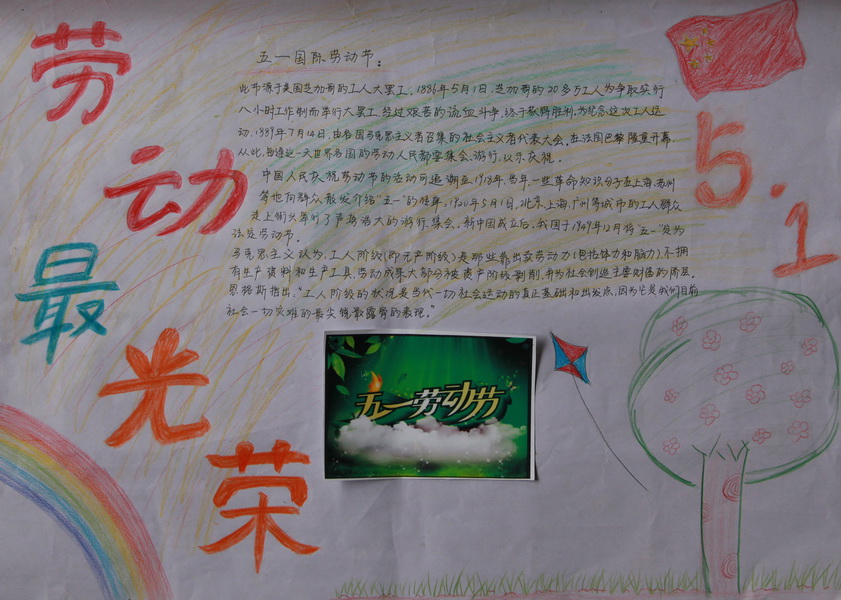 劳动最光荣
5.1
五一国际劳动节：
此节源于美国芝加哥的工人大罢工，1886年5月1日，芝加哥的20多万工人为争取实行
八小时工作制而举行大罢工，经过艰苦的流血斗争，终于获得胜利。为纪念这次工人运
动，1889年7月14日，由各国马克思主义者召集的社会主义者代表大会，在法国巴黎隆重开幕。
从此，每逢这一天世界各国的劳动人民都要集会，游行，以示庆祝。
中国人民庆祝劳动节的活动可追溯至1918年，当年，一些革命知识分子在上海，苏州
等地向群众散发介绍"五一"的传单。1920年5月1日，北京，上海，广州等城市的工人群众
走上街头举行了声势浩大的游行，集会。新中国成立后，我国于1949年12月将"五一"定为
法定劳动节。
马克思主义认为，工人阶级（即无产阶级）是那些靠出卖劳动力（包括体力和脑力），不拥
有生产资料和生产工具，劳动成果大部分被资产阶级剥削，并为社会创造主要财富的阶层。
恩格斯指出，"工人阶级的状况是当代一切社会运动的真正基础和出发点，因为它是我们目前
社会一切灾难的最尖锐最露骨的表现。"
五一劳动节